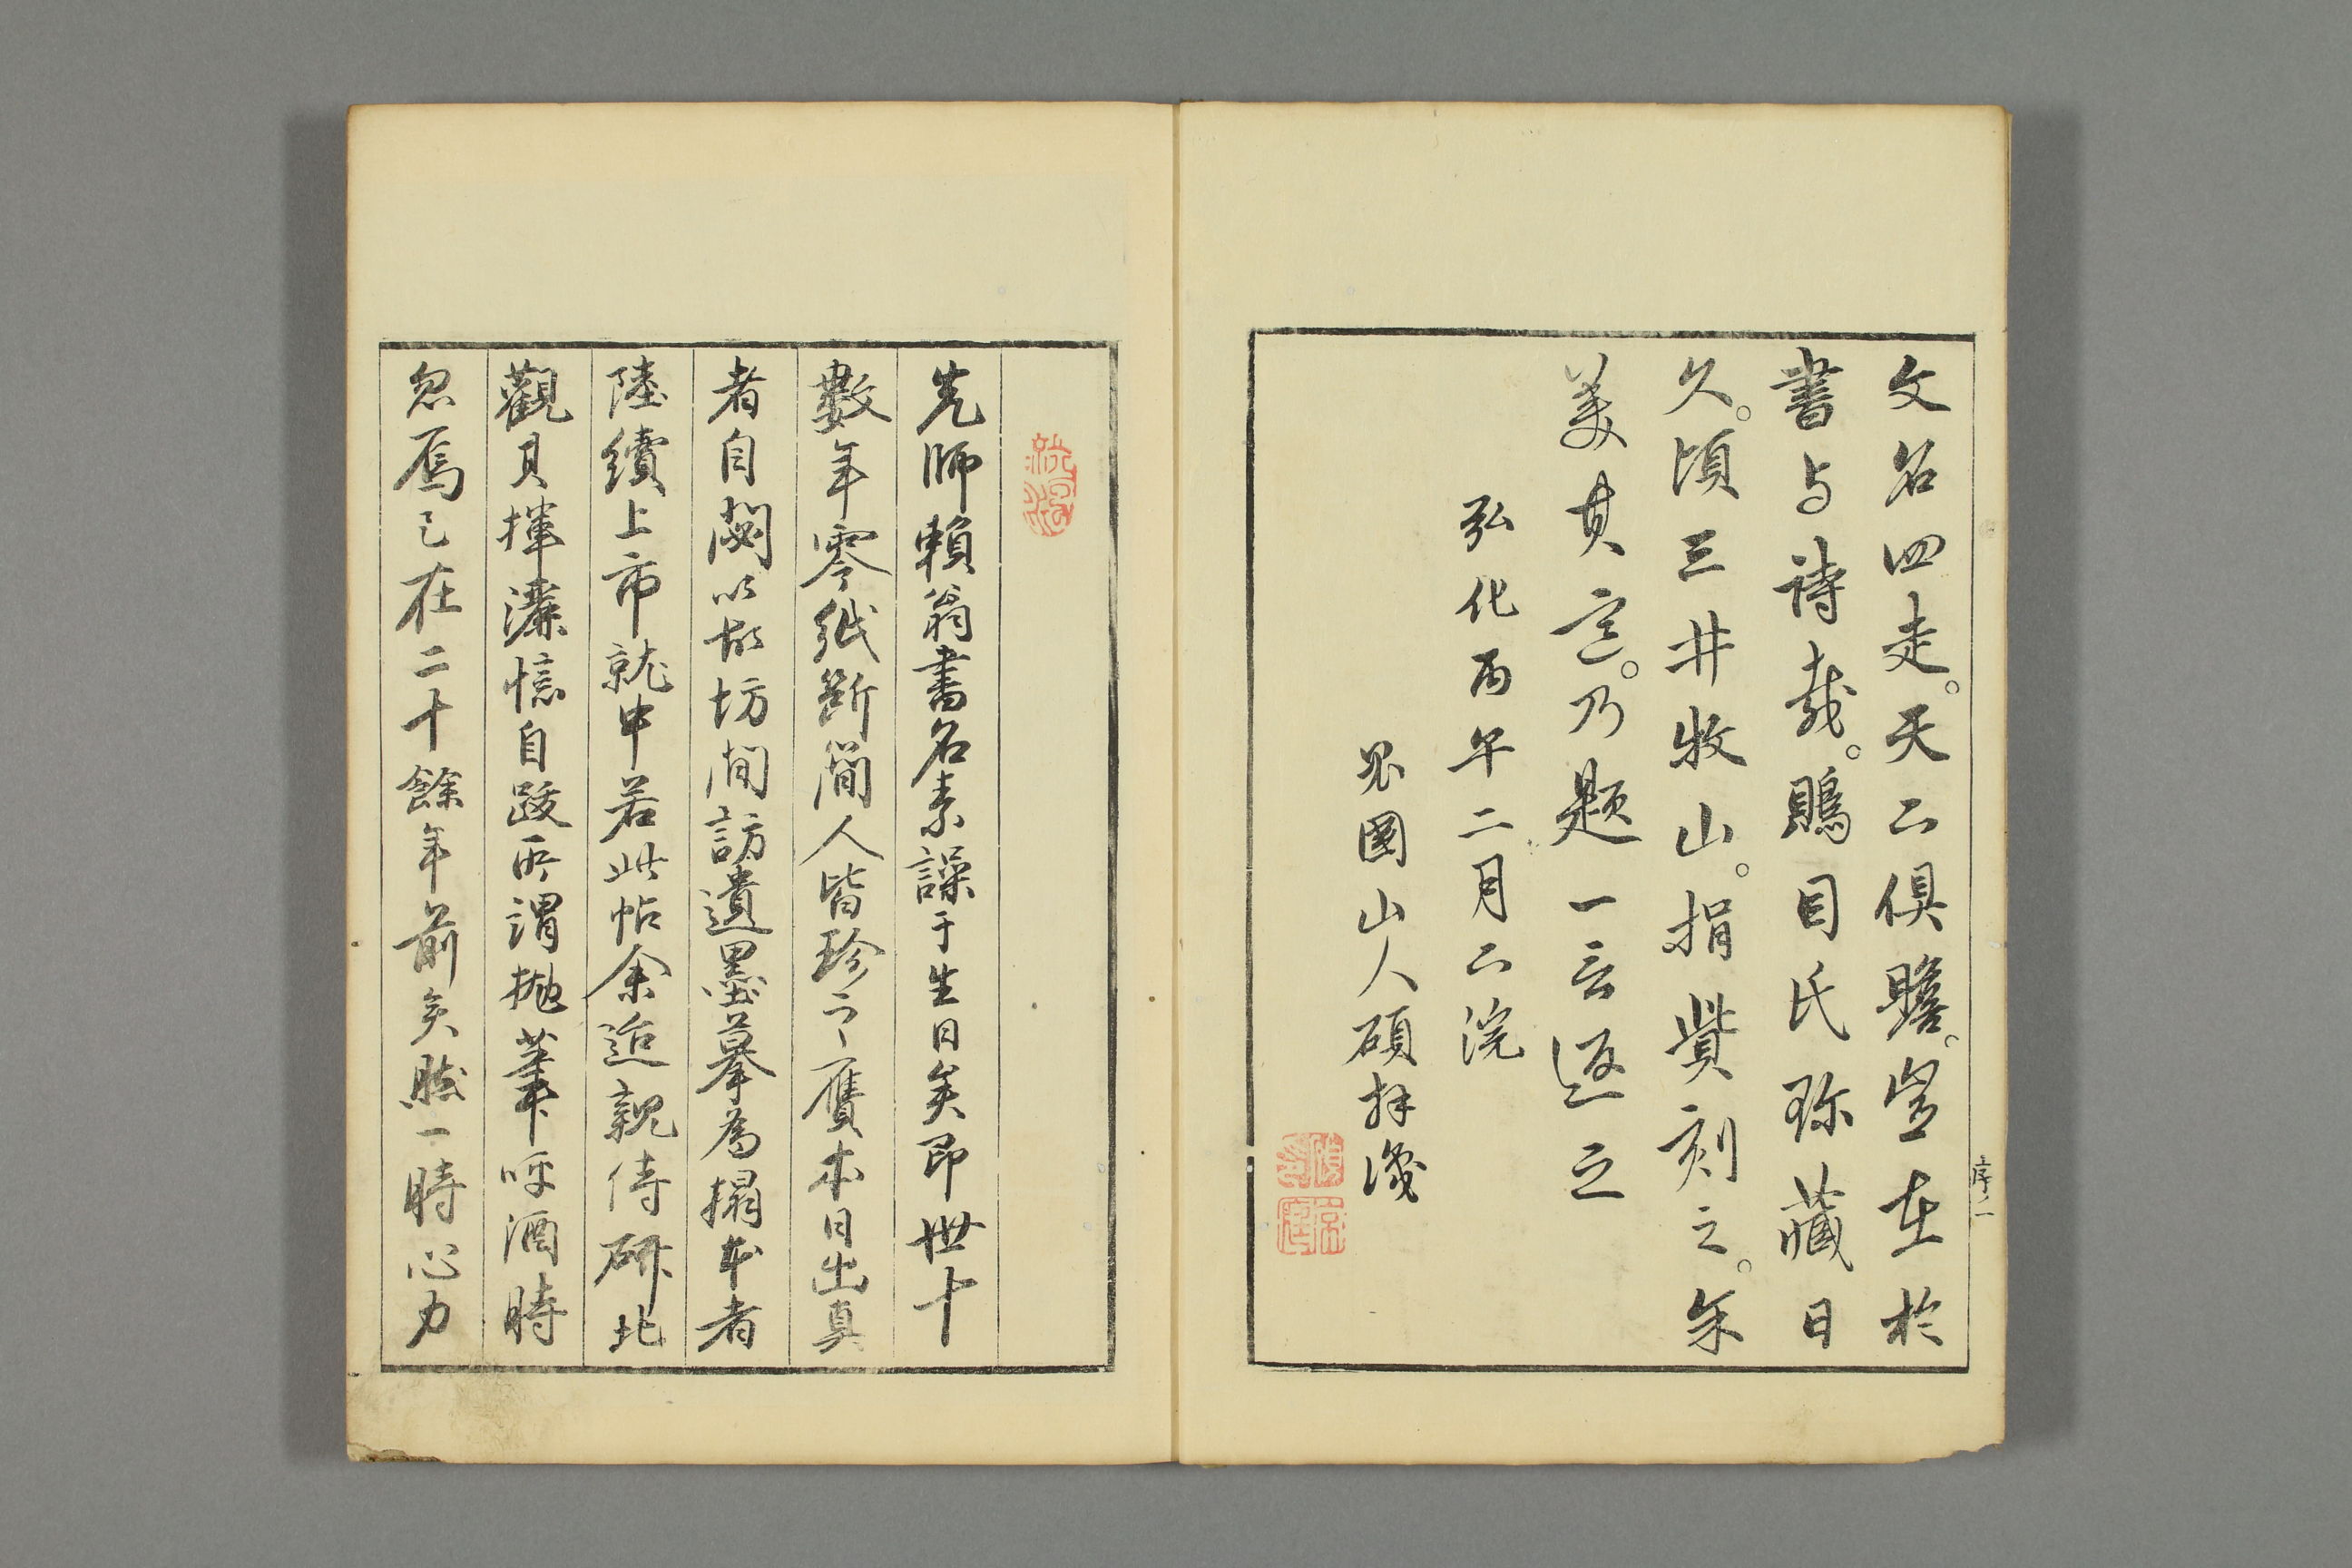 文名四走。天亦倶贍。豈在於
書与詩哉。鵙目氏珎藏日
久。頃三井牧山。捐貲刻之。余
美其意。乃題一言還之
弘化丙午二月下浣
山人碩拜識
序ノ二
先師賴翁書名素譟于生日矣即世十
數年零紙斷簡人皆珍之贋本日出真
者自閟以故坊間訪遺墨摹為搨本者
陸續上市就中若此帖余近親侍研北
觀其揮灑憶自跋所謂拋筆呼酒時
忽焉已在二十餘年前矣然一時心力